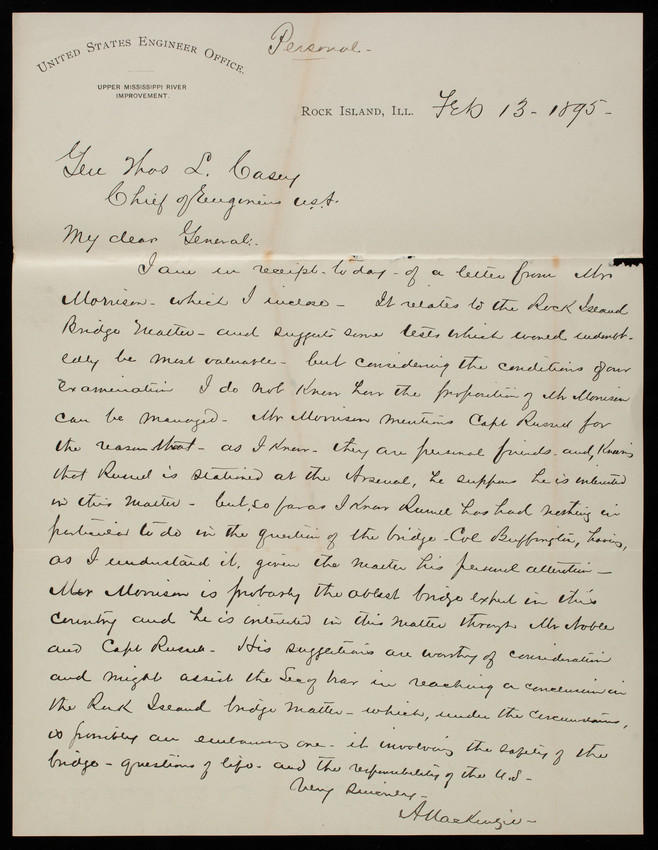 Personal -
United States Engineer Office.
UPPER MISSISSIPPI RIVER
IMPROVEMENT.
Rock Island, Ill. Feb 13 - 1895 -
Gen Thos L. Casey
Chief of Engineers U.S.A.
My dear General:.
I am in receipt - to day - of a letter from Mr
Morrison - which I inclose - It relates to the Rock Island
Bridge Matter - and suggests some tests which would undoubt-
edly be most valuable - but considering the conditions of our
examination I do not know how the proposition of Mr Morrison
can be managed - Mr Morrison mentions Capt Russel for
the reason that - as I know - they are personal friends - and, knowing
that Russel is stationed at the Arsenal, he supposes he is interested
in this matter - but, so far as I know Russel has had nothing in
particular to do in the question of the bridge - Col Buffington, having,
as I understand it, given the matter his personal attention -
Mr Morrison is probably the ablest bridge expert in this
country and he is interested in this matter through Mr Noble
and Capt Russel - His suggestions are worthy of consideration
and might assist the Sec of War in reaching a conclusion in
the Rock Island bridge matter - which, under the circumstances,
is possibly an embarrassing one - it involving the safety of the
bridge - questions of life - and the responsibility of the U.S -
Very Sincerely -
A Mackenzie -